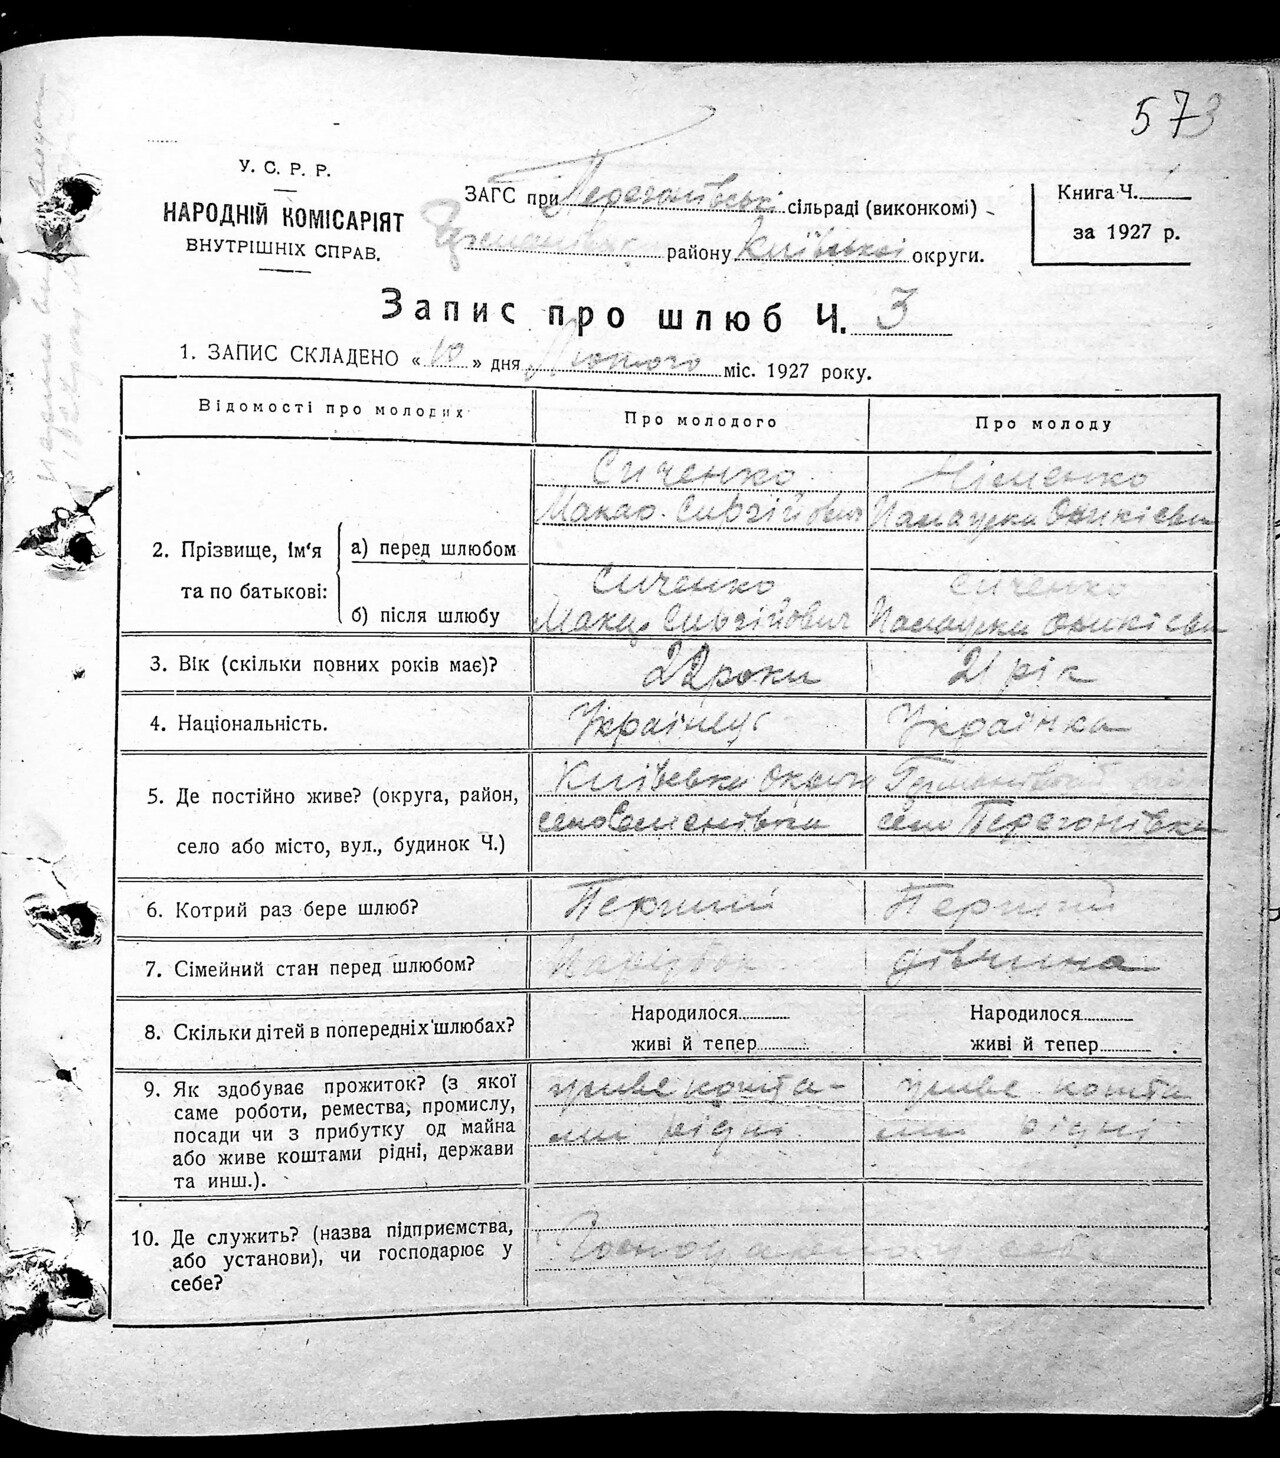 573
У. С. Р. Р.
НАРОДНІЙ КОМІСАРІЯТ
ВНУТРІШНІХ СПРАВ.
ЗАГС при Перегонівські сільраді (виконкомі)
району Київської округи.
Книга Ч.
за 1927 р.
Запис про шлюб Ч. 3
1. ЗАПИС СКЛАДЕНО « 10 » дня Лютого міс. 1927 року.
Відомості про молодих
Про молодого
Про молоду
2. Прізвище, ім‘я та по батькові:
а) перед шлюбом
Сиченко
Макар Сиргійович
Німенко
б) після шлюбу
Сиченко
Макар Сиргійович
Сиченко
3. Вік (скільки повних років має)?
22 роки
21 рік
4. Національність.
Українець
Українка
5. Де постійно живе? (округа, район,
село або місто, вул., будинок Ч.)
Київська Округа
село Семенівка
село Перегонівка
6. Котрий раз бере шлюб?
Перший
Перший
7. Сімейний стан перед шлюбом?
Парубок
дівчина
8. Скільки дітей в попередніх шлюбах?
Народилося
живі й тепер
Народилося
живі й тепер
9. Як здобуває прожиток? (з якої
саме роботи, ремества, промислу,
посади чи з прибутку од майна
або живе коштами рідні, держави
та инш.).
живе кошта-
ми рідні
живе кошта
ми рідні
10. Де служить? (назва підприємства,
або установи), чи господарює у
себе?